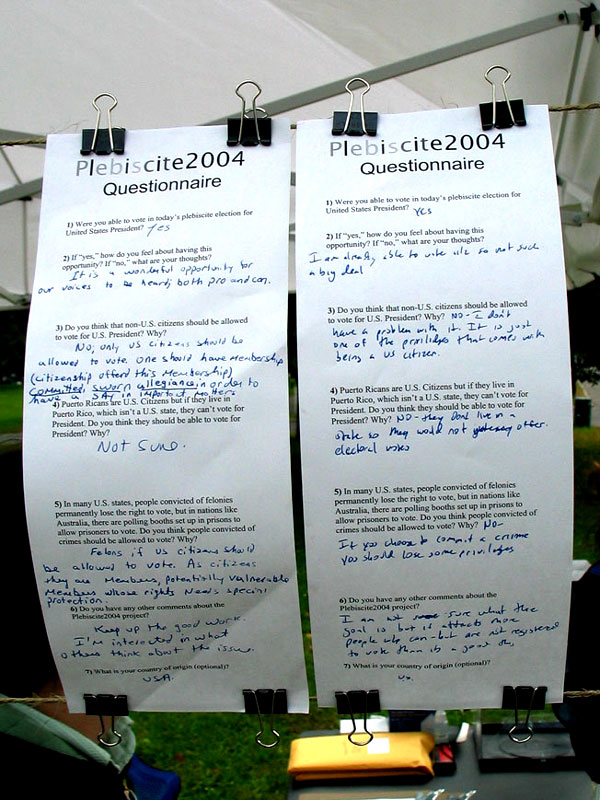 Plebiscite2004
Questionnaire
1) Were you able to vote in today's plebiscite election for
United States President? Yes
2) If "yes," how do you feel about having this
opportunity? If "no," what are your thoughts?
It is a wonderful opportunity for
our voices to be heard; both pro and con.
3) Do you think that non-U.S. citizens should be allowed
to vote for U.S. President? Why?
No; only US citizens should be
allowed to vote. One should have Membership
(citizenship offerd this Membership)
committed, sworn allegiance, in order to
have a SAY in important matters
4) Puerto Ricans are U.S. Citizens but if they live in
Puerto Rico, which isn't a U.S. state, they can't vote for
President. Do you think they should be able to vote for
President? Why?
Not Sure.
5) In many U.S. states, people convicted of felonies
permanently lose the right to vote, but in nations like
Australia, there are polling booths set up in prisons to
allow prisoners to vote. Do you think people convicted of
crimes should be allowed to vote? Why?
Felons if US citizens should
be allowed to vote. As citizens
they are Members, potentially vulnerable
Members whose rights needs special
protection.
6) Do you have any other comments about the
Plebiscite2004 project?
Keep up the good work.
I'm interested in what
others think about the issue.
7) What is your country of origin (optional)?
USA.
Plebiscite2004
Questionnaire
1) Were you able to vote in today's plebiscite election for
United States President? Yes
2) If "yes," how do you feel about having this
opportunity? If "no," what are your thoughts?
I am already able to vote so not such
a big deal
3) Do you think that non-U.S. citizens should be allowed
to vote for U.S. President? Why? NO - I don't
have a problem with it. It is just
one of the priviliges that comes with
being a US citizen.
4) Puerto Ricans are U.S. Citizens but if they live in
Puerto Rico, which isn't a U.S. state, they can't vote for
President. Do you think they should be able to vote for
President? Why? NO - they Dont live in a
state so they would not offer
electoral votes
5) In many U.S. states, people convicted of felonies
permanently lose the right to vote, but in nations like
Australia, there are polling booths set up in prisons to
allow prisoners to vote. Do you think people convicted of
crimes should be allowed to vote? Why? NO-
If you choose to commit a crime
you should lose some priviliges
6) Do you have any other comments about the
Plebiscite2004 project?
I am not sure what the
goal is but is attracts more
people who can - but are not registered
to vote than its a good
7) What is your country of origin (optional)?
US.